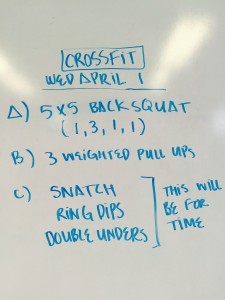 CROSSFIT
WED APRIL 1
A) 5x5 BACKSQUAT
(1,3,1,1)
B) 3 WEIGHTED PULL UPS
C) SNATCH
RING DIPS
DOUBLE UNDERS
THIS WILL
BE FOR
TIME